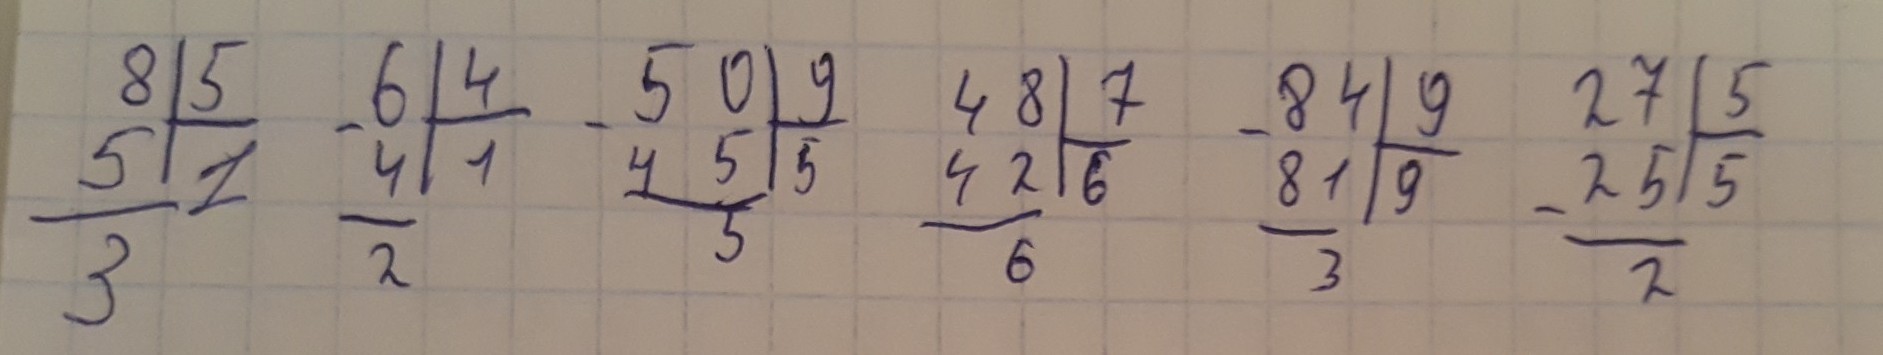 8 5 6 4 50 9 48 7 84 9 27 5
5 1 -4 1 -45 5 42 6 -81 9 -25 5
3 2 5 6 3 2